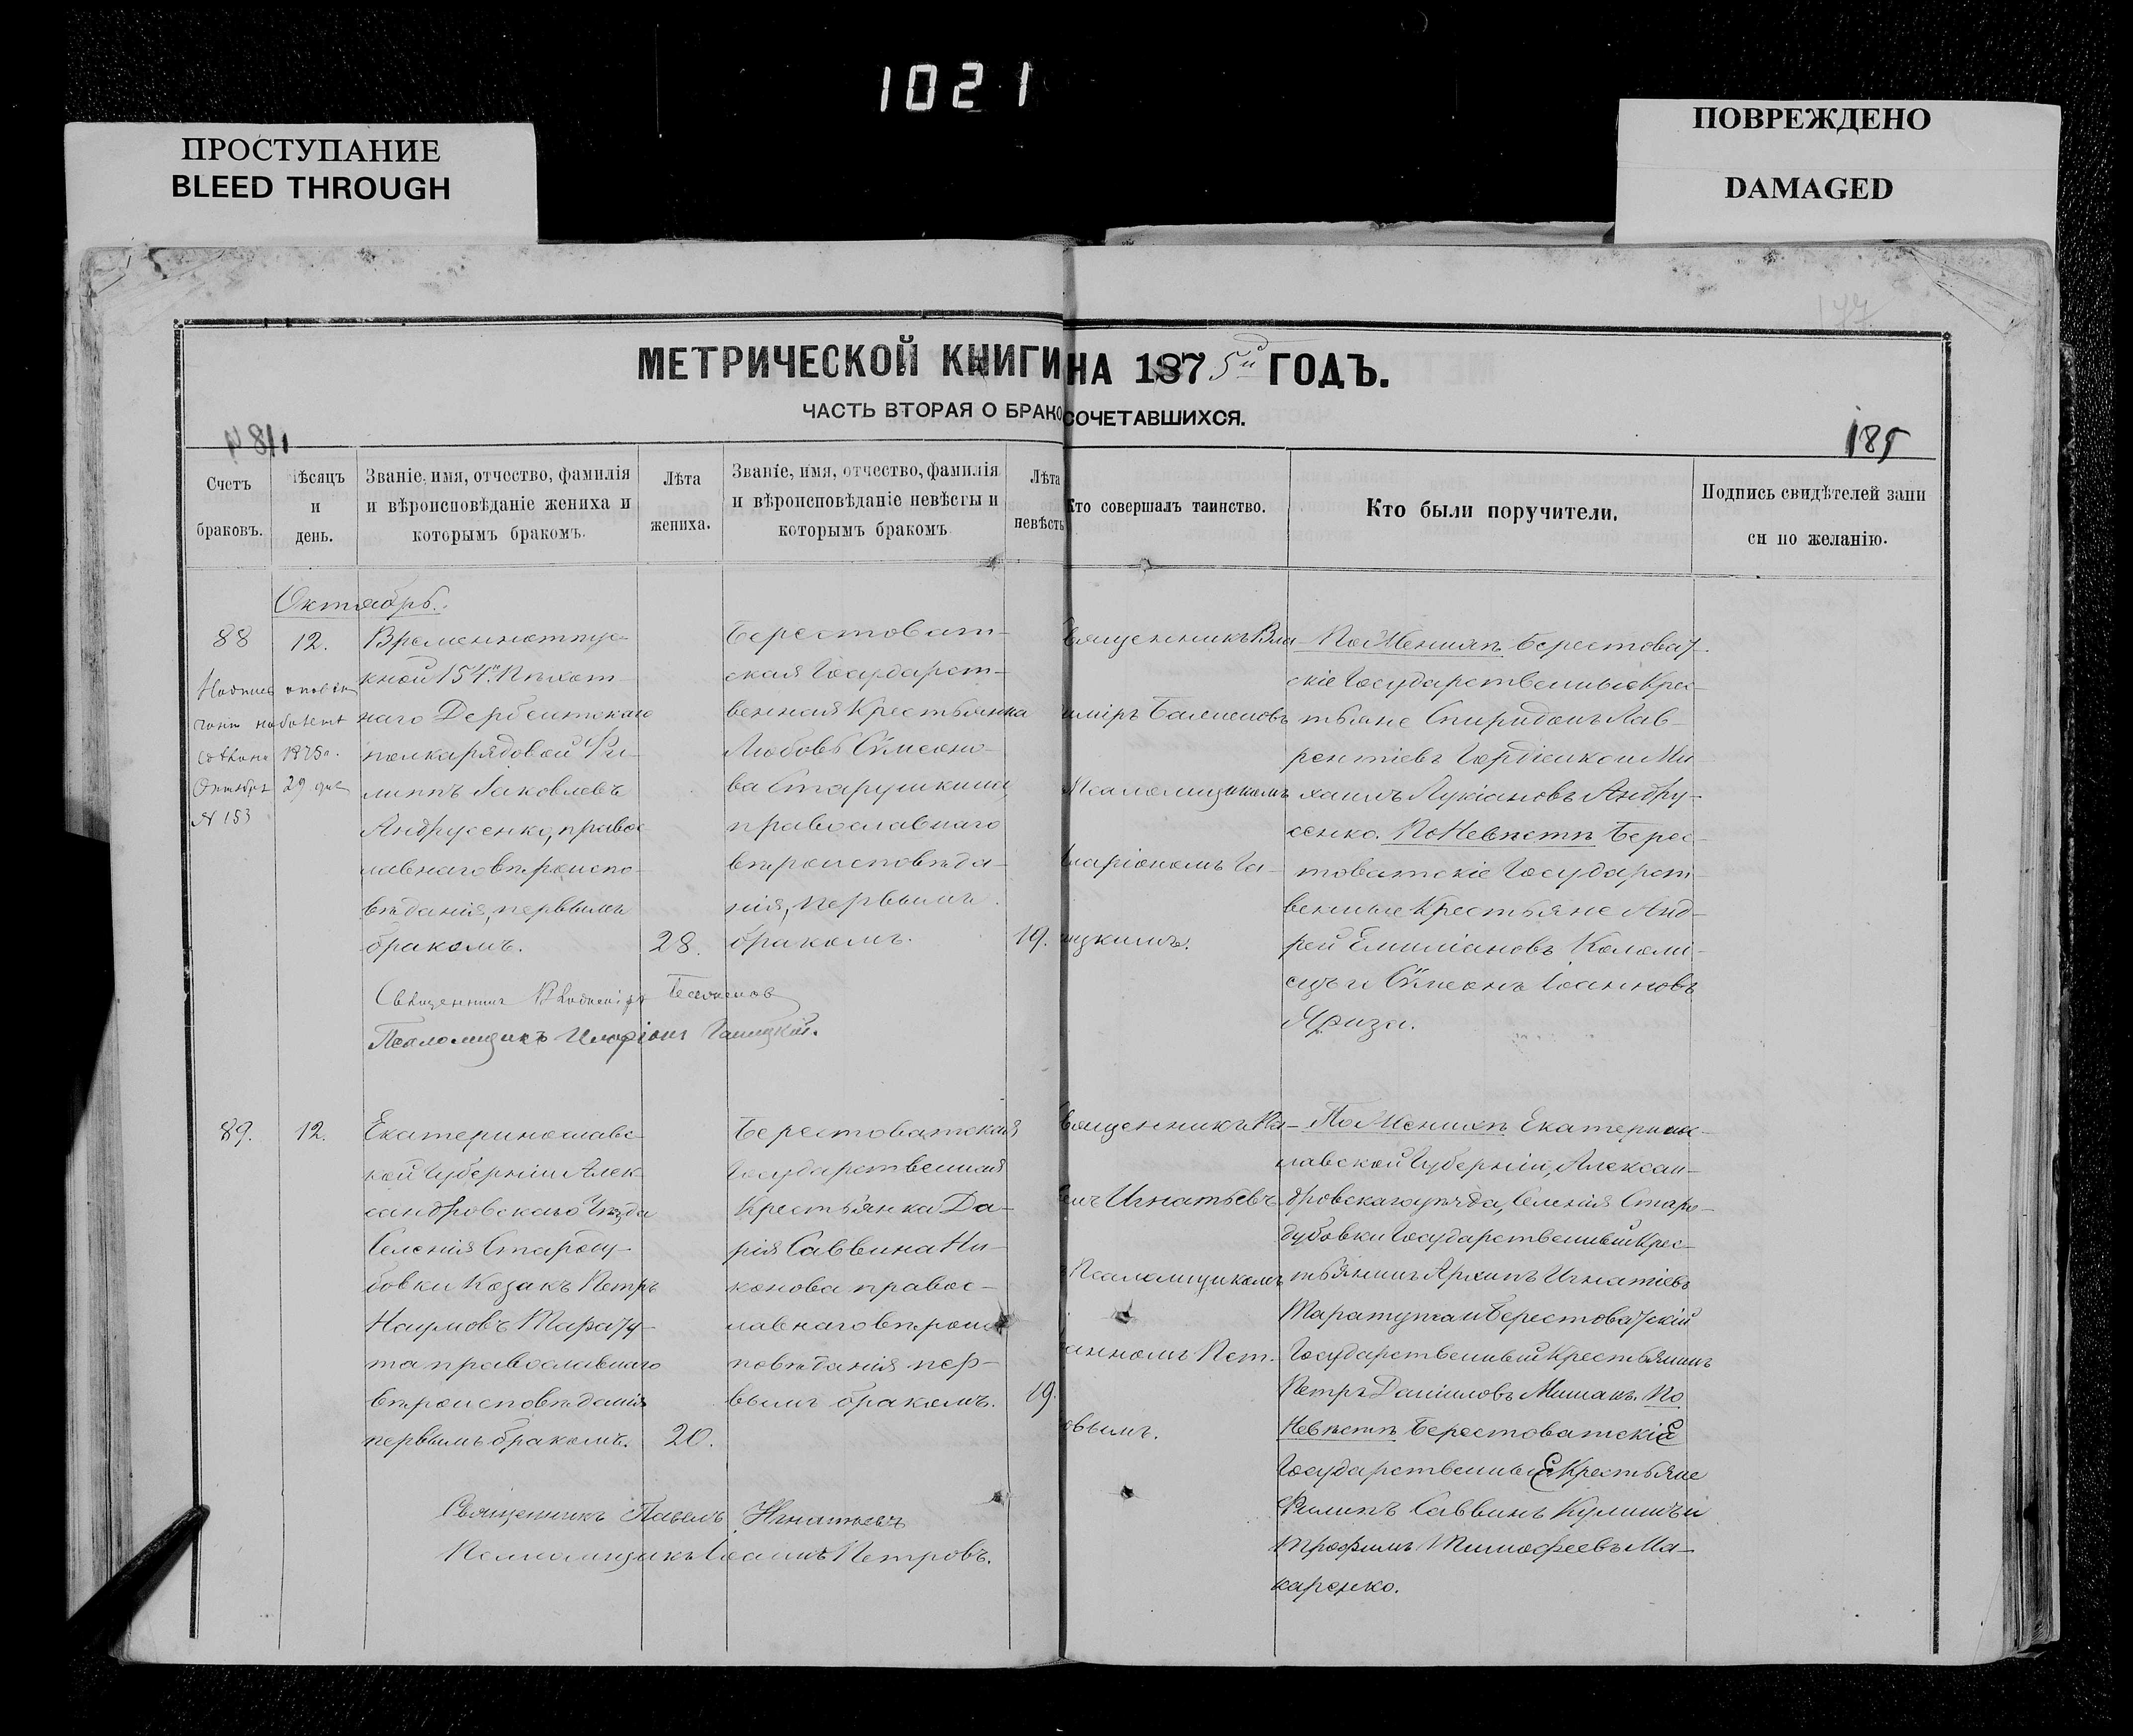 1021
ПРОСТУПАНИЕ
BLEED THROUGH
ПОВРЕЖДЕНО
DAMAGED
177
МЕТРИЧЕСКОЙ КНИГИ НА 1875й ГОДЪ.
ЧАСТЬ ВТОРАЯ О БРАКОСОЧЕТАВШИХСЯ.
185
Счетъ
браковъ.
мѣсяцъ
и
день.
Званіе, имя, отчество, фамилія
и вѣроисповѣданіе жениха и
которымъ бракомъ.
Лѣта
жениха.
Званіе, имя, отчество, фамилія
и вѣроисповѣданіе невѣсты и
которымъ бракомъ
Лѣта
невѣсты
Кто совершалъ таинство.
Кто были поручители.
Подпись свидѣтелей запи
си по желанію.
Октябрь.
88
12.
1875
Октября 29 дня
№ 153
Временноотпус-
кной 154й Пѣхот-
наго Дербентскаго
полка рядовой Фи-
липпъ Іаковлевъ
Андрусенко, правос-
лавнаго вѣроиспо-
вѣданія, первымъ
бракомъ.
28.
Берестоват-
ская Государст-
венная Крестьянка
Любовь Сѵмеоно-
ва Старушкина
православнаго
вѣроисповѣда-
нія, первымъ
бракомъ.
19.
Священникъ Вла-
диміръ
Псаломщикомъ
Иларіономъ Га-
лицкимъ.
По Женихѣ Берестоват-
скіе Государственные Крес-
тьяне Спиридонъ Лав-
рентіевъ Гордіенко и Ми-
хаилъ Лукіановъ Андру-
сенко. По Невѣстѣ Берес-
товатскіе Государст-
венные Крестьяне Анд-
рей Емиліановъ Коломи-
ецъ и Сѵмеонъ Іоанновъ
Яриза.
Священникъ Владиміръ
Псаломщикъ Иларіонъ Галицкій.
89.
12.
Екатеринославс-
кой Губерніи Алек-
сандровскаго Уѣзда
Селенія Староду-
бовки Козакъ Петръ
Наумовъ Тарату-
та православнаго
вѣроисповѣданія
первымъ бракомъ.
20.
Берестоватская
Государственная
Крестьянка Да-
рія Саввина Ни-
конова правос-
лавнаго вѣроис-
повѣданія пер-
вымъ бракомъ.
19.
Священникъ Па-
велъ Игнатьевъ
съ Псаломщикомъ
Іоанномъ Пет-
ровымъ.
По Женихѣ Екатеринос-
лавской Губерніи, Алексан-
дровскаго уѣзда, Селенія Старо-
дубовки Государственный Крес-
тьянинъ Архипъ Игнатіевъ
Таратута и Берестоватскій
Государственный Крестьянинъ
Петръ Даніиловъ Мишакъ. По
Невѣстѣ Берестоватскіе
Государственные Крестьяне
Филипъ Саввинъ Кулишъ и
Трофимъ Тимофеевъ Ма-
каренко.
Священникъ Павелъ Игнатьевъ
Псаломщикъ Іоаннъ Петровъ.